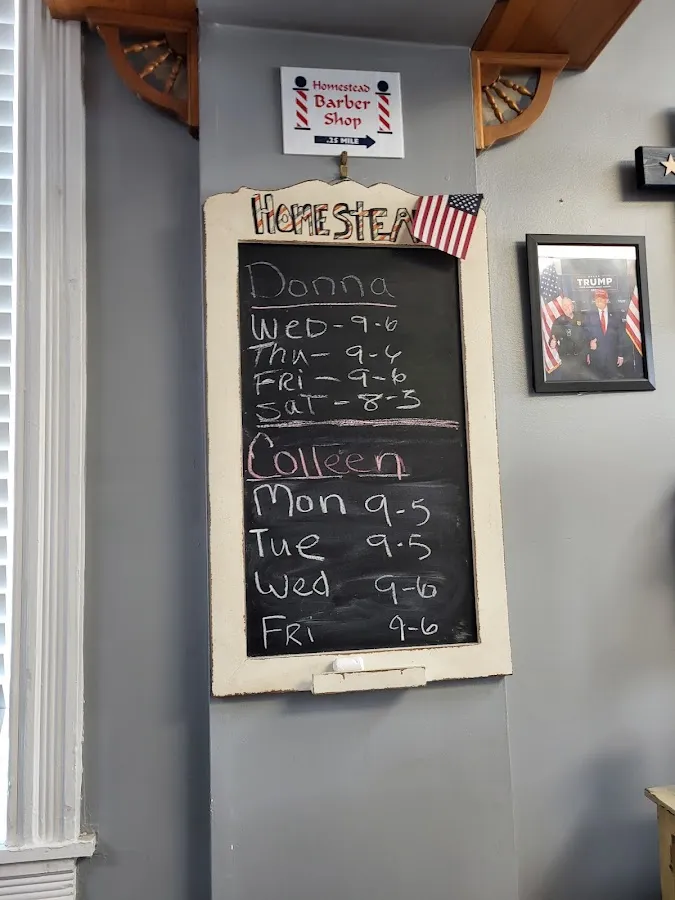 Homestead
Barber
Shop
.25 MILE
HOMESTEA
TRUMP
Donna
WED - 9-6
Thu - 9-6
FRi - 9-6
Sat - 8-3
Colleen
Mon 9-5
Tue 9-5
Wed 9-6
FRi 9-6